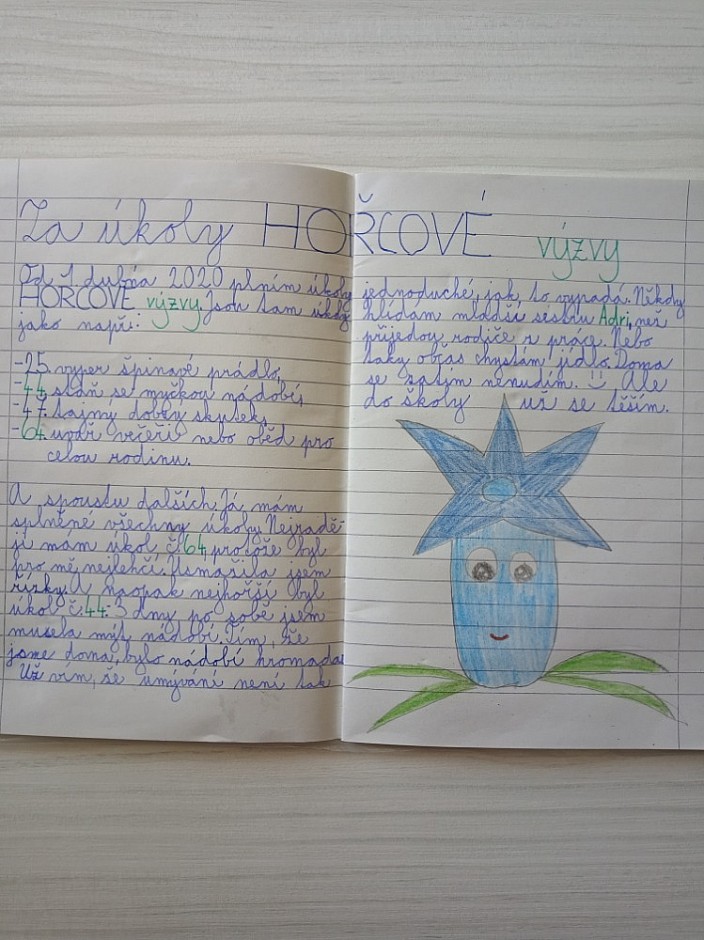 Za úkoly HOŘCOVÉ výzvy
Od 1. dubna 2020 plním úkoly
HOŘCOVÉ výzvy. Jsou tam úkoly
jako např.:
-25. vyper špinavé prádlo,
-44. staň se myčkou nádobí,
-47. tajný dobrý skutek,
-64. uvař večeři nebo oběd pro
celou rodinu.
A spoustu dalších. Já mám
splněné všechny úkoly. Nejradě-
ji mám úkol č. 64, protože byl
pro mě nejlehčí. Usmažila jsem
řízky. A naopak nejhorší byl
úkol č. 44. 3 dny po sobě jsem
musela mýt nádobí. Tím, že
jsme doma, bylo nádobí hromada.
Už vím, že umývání není tak
jednoduché, jak to vypadá. Někdy
hlídám mladší sestru Adri, než
přijedou rodiče z práce. Nebo
taky občas chystám jídlo. Doma
se zatím nenudím. Ale
do školy už se těším.